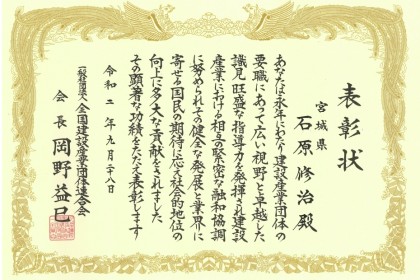 表彰状
宮城県
石原修治殿
あなたは永年にわたり建設産業団体の
要職にあって広い視野と卓越した
識見旺盛な指導力を発揮され建設
産業における相互の緊密な融和協調
に努められその健全な発展と業界に
寄せる国民の期待に応え社会的地位の
向上に多大な貢献をされました
その顕著な功績をたたえ表彰します
令和二年九月二十八日
一般社団法人全国建設産業団体連合会
会長岡野益巳